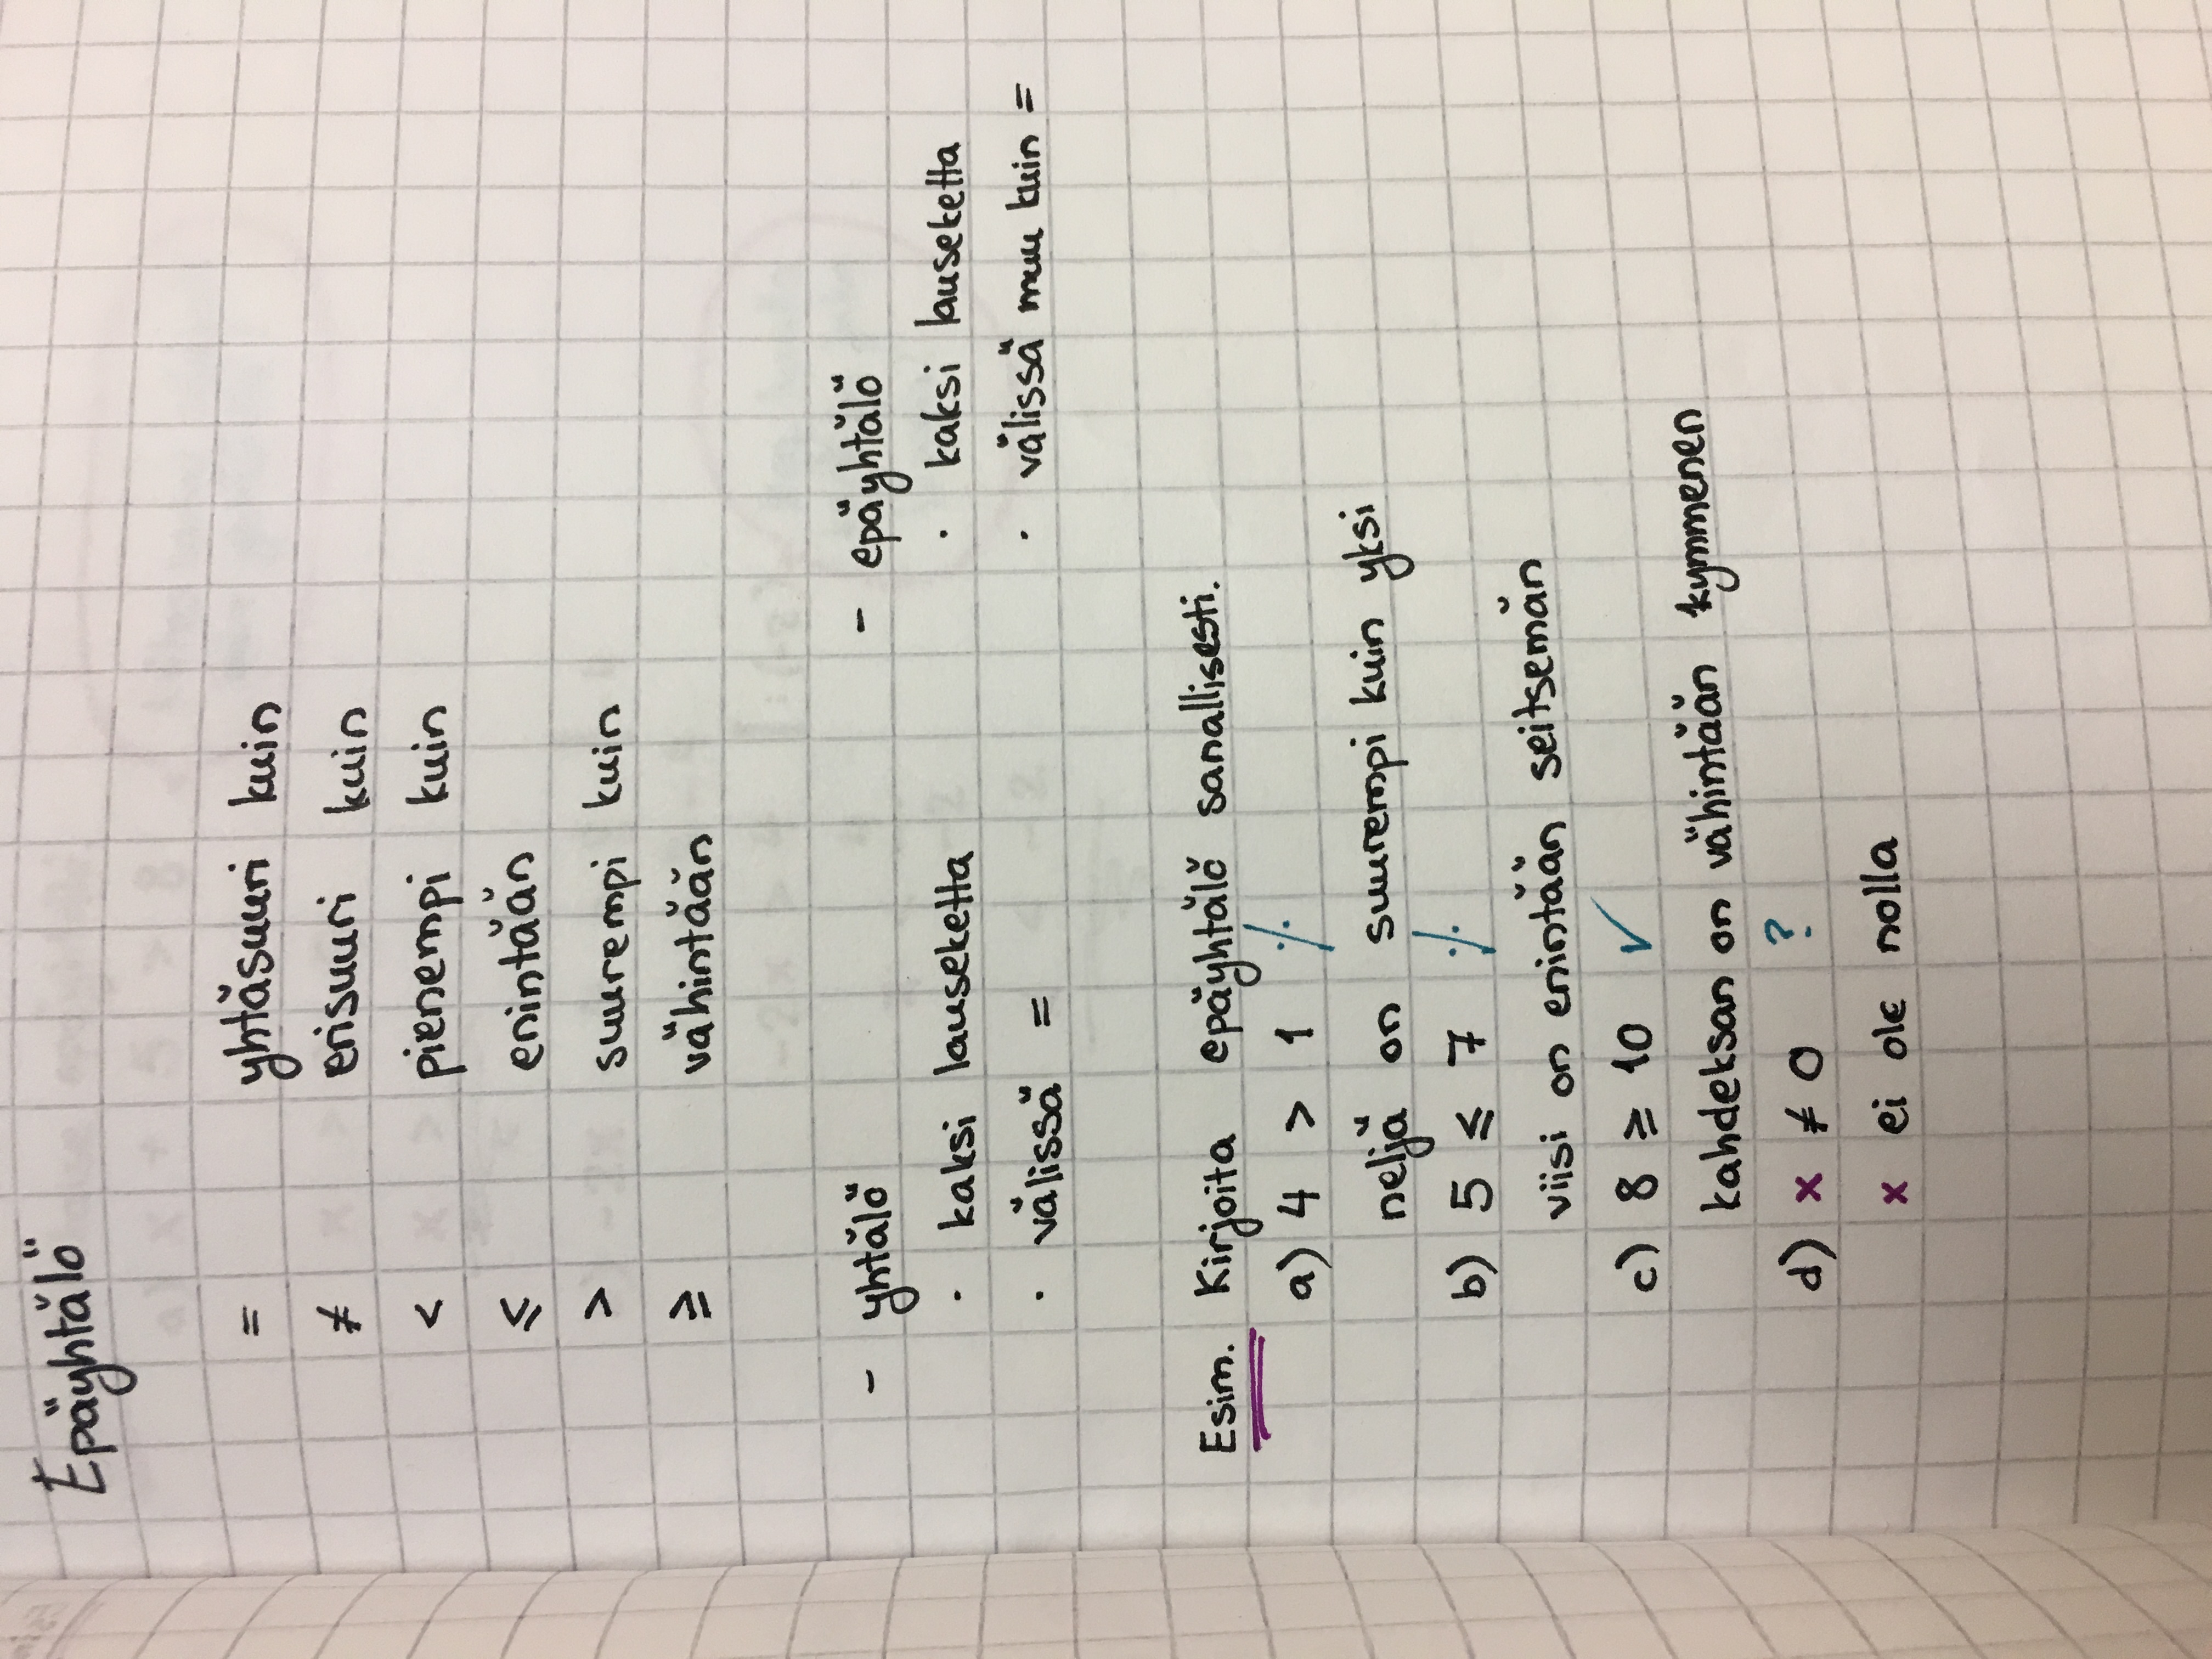 Epäyhtälö
= yhtäsuuri kuin
≠ erisuuri kuin
< pienempi kuin
≤ enintään
> suurempi kuin
≥ vähintään
- yhtälö - epäyhtälö
· kaksi lauseketta · kaksi lauseketta
· välissä = · välissä muu kuin =
Esim. Kirjoita epäyhtälö sanallisesti.
a) 4 > 1 ·/.
neljä on suurempi kuin yksi
b) 5 ≤ 7 ·/.
viisi on enintään seitsemän
c) 8 ≥ 10 √
kahdeksan on vähintään kymmenen
d) x ≠ 0 ?
x ei ole nolla